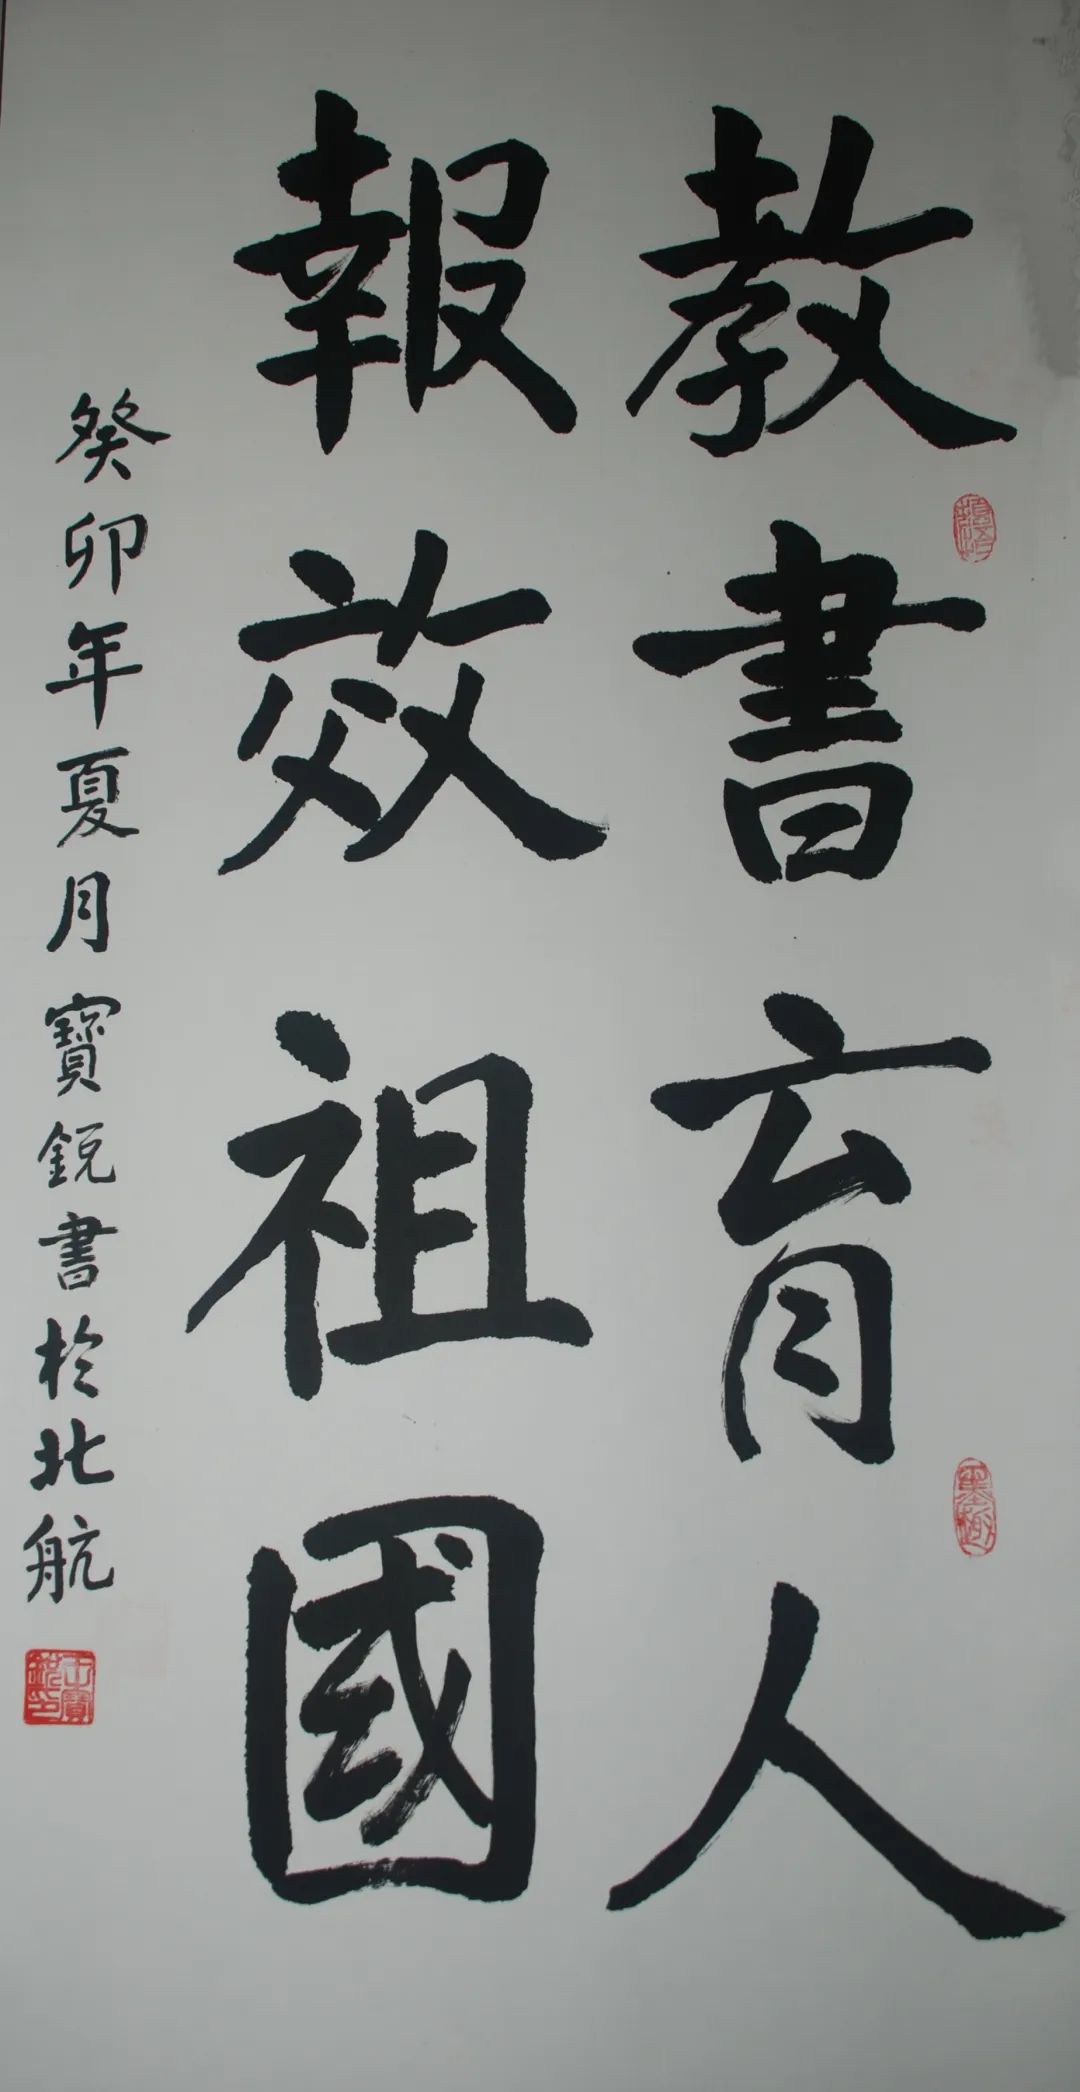 教書育人
報效祖國
癸卯年夏月寶銳書於北航